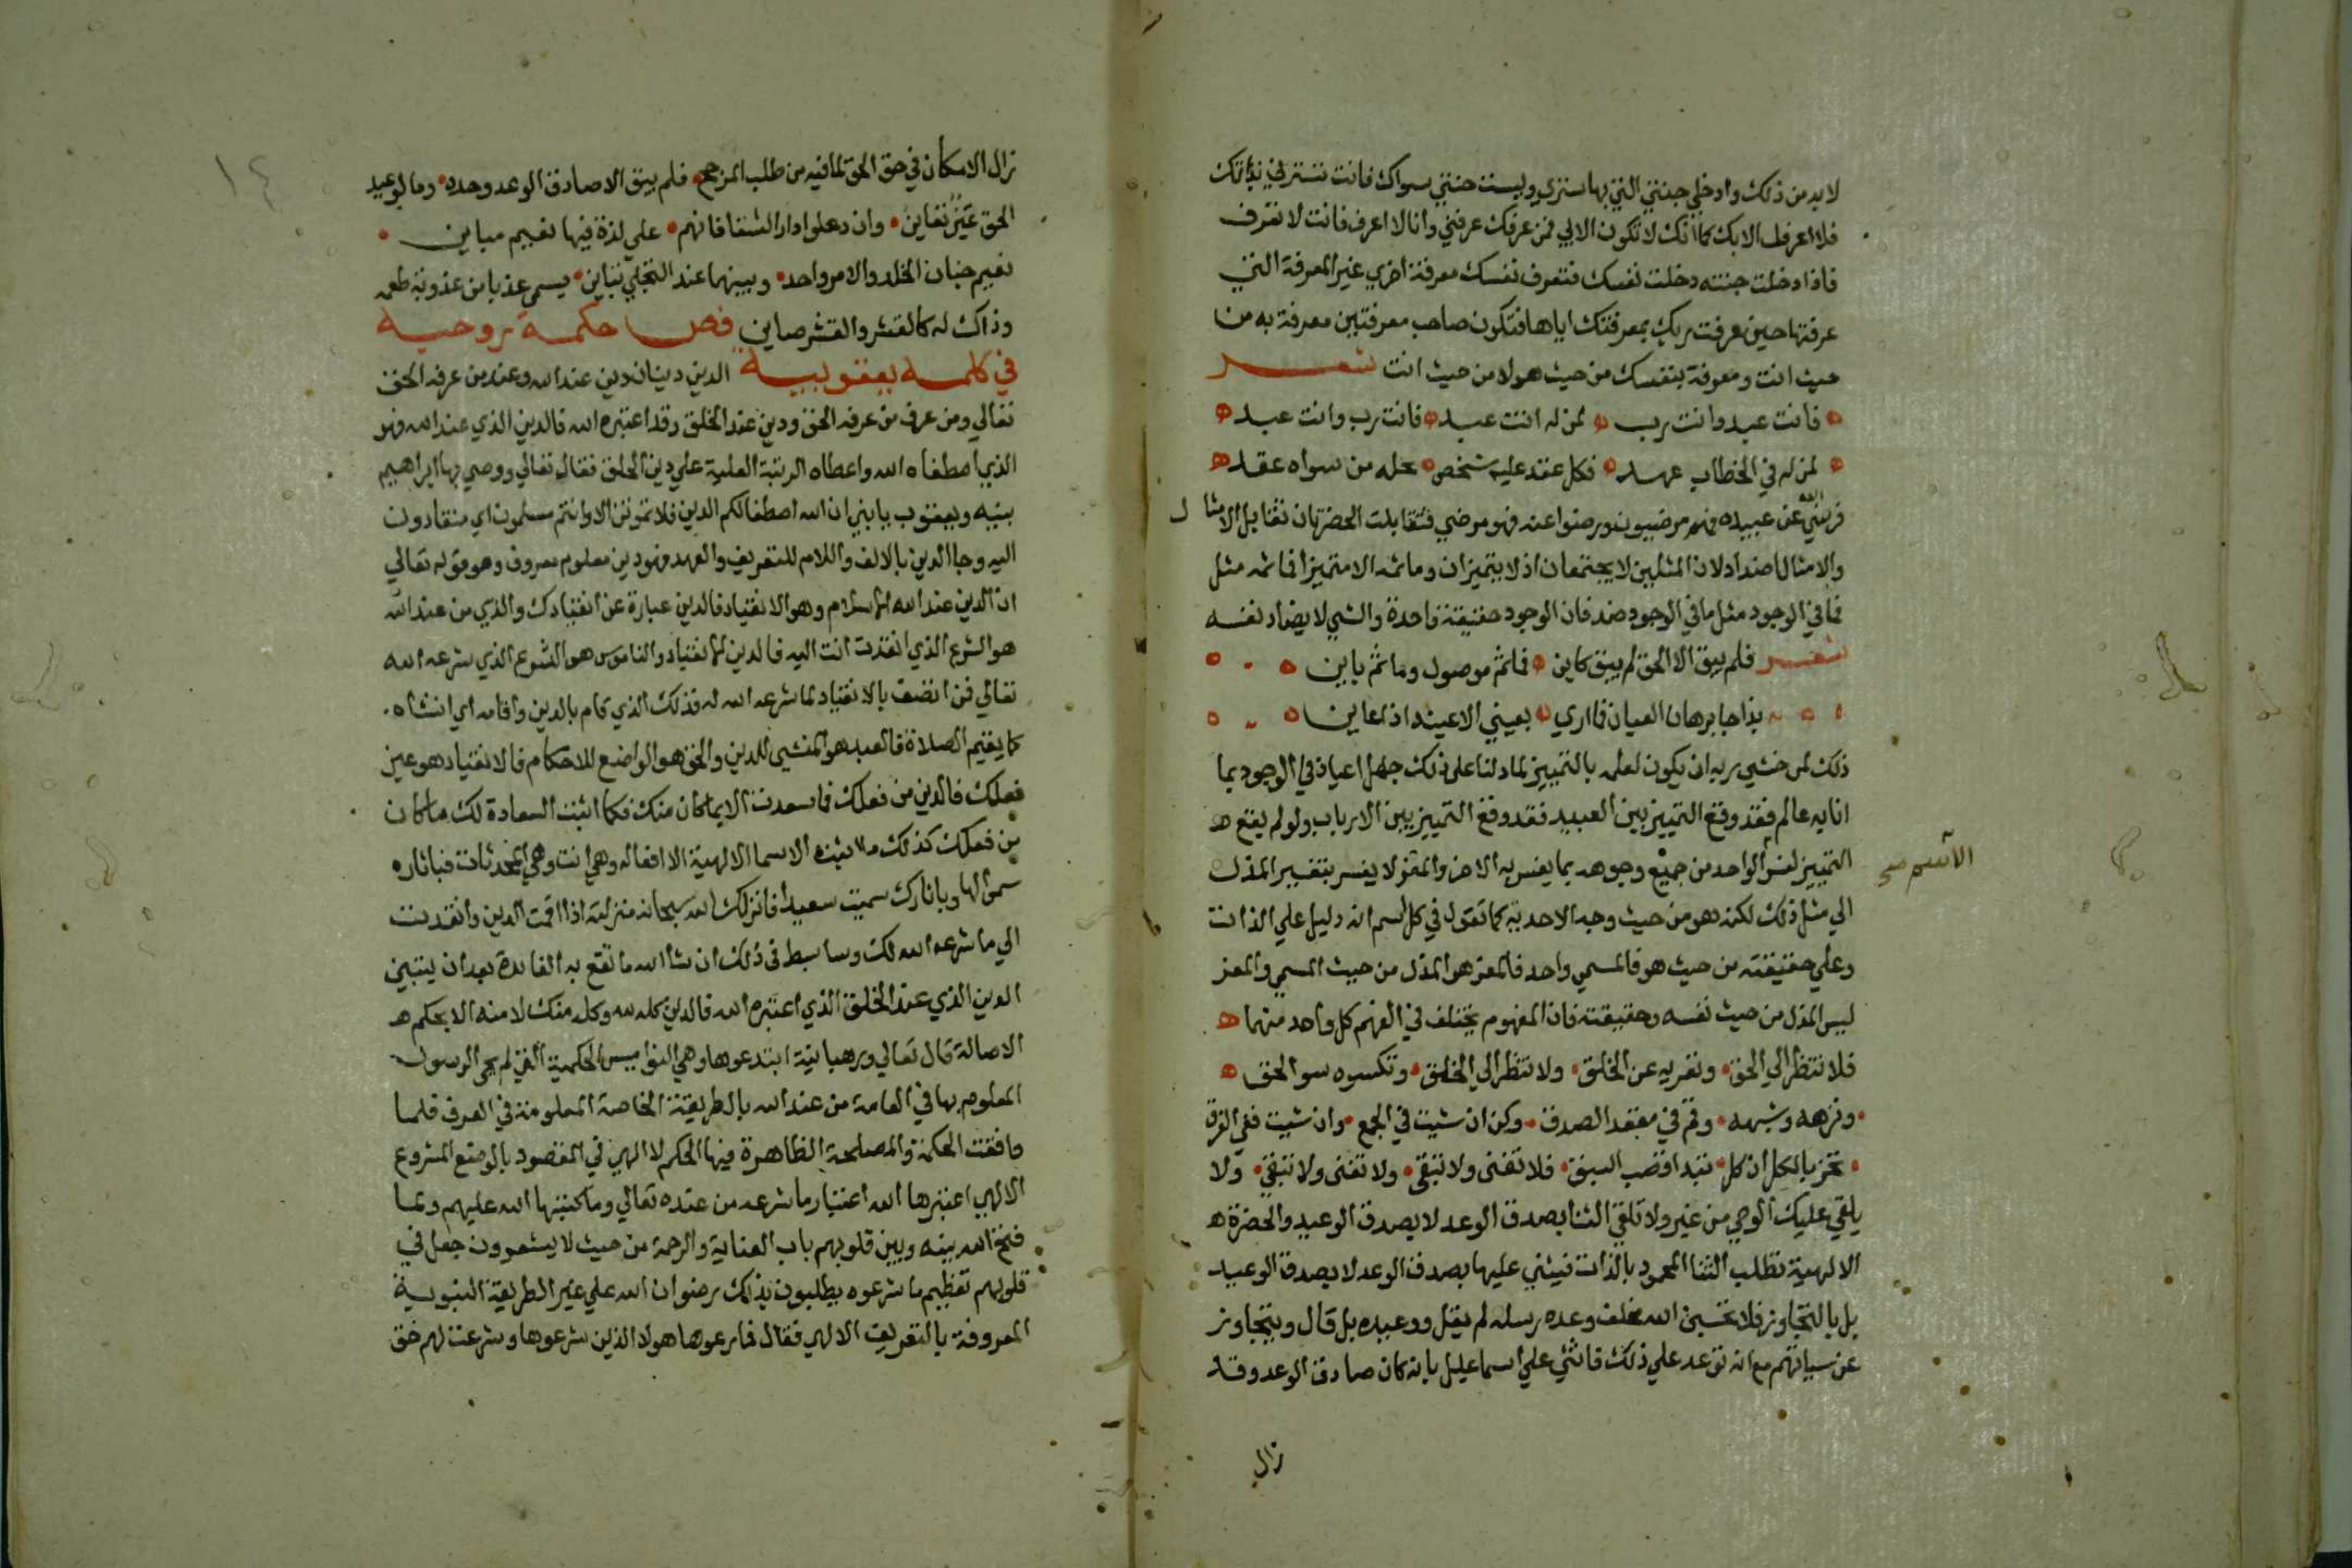 لا بد من ذلك وادخلي جنتي التي بها ستري وليست جنتي سواك فانت تسترني بذاتك
فلا اعرف الا بك كما انك لا تكون الا بي فمن عرفك عرفني وانا لا اعرف فانت لا تعرف
فاذا دخلت جنته دخلت نفسك فتعرف نفسك معرفة اخري غير المعرفة التي
عرفتها حين عرفت ربك بمعرفتك اياها فتكون صاحب معرفتين معرفة به من
حيث انت ومعرفة بنفسك من حيث هو لا من حيث انت شعر
فانت عبد وانت رب لمن له انت عبد فانت رب وانت عبد
لمن له في الخطاب عهد فكل عقد عليه شخص يحله من سواه عقد
فرضي الله عن عبيده فهم مرضيون ورضوا عنه فهو مرضي فتقابلت الحضرتان تقابل الامثال
والامثال اضداد لان المثلين لا يجتمعان اذ لا يتميزان وما ثمه الا متميز فما ثمه مثل
فما في الوجود مثل ما في الوجود ضد فان الوجود حقيقة واحدة والشي لا يضاد نفسه
شعر فلم يبق الا الحق لم يبق كاين فما ثم موصول وما ثم باين
بذا جا برهان العيان فما اري بعيني الا عينه اذ اعاين
ذلك لمن خشي ربه ان يكون لعلمه بالتمييز لما دلنا على ذلك جهل اعيان في الوجود بما
اتا به عالم فقد وقع التمييز بين العبيد فقد وقع التمييز بين الارباب ولو لم يقع
التمييز لفسر الواحد من جميع وجوهه بما يفسر به الاخر والمعز لا يفسر بتفسير المذل
الاسم صح
الي مثل ذلك لكنه هو من حيث وجه الاحدية كما تقول في كل اسم انه دليل علي الذات
وعلي حقيقته من حيث هو فالمسمي واحد فالمعز هو المذل من حيث المسمي والمعز
ليس المذل من حيث نفسه وحقيقته فان المفهوم يختلف في الفهم كل واحد منهما
فلا تنظر الي الحق وتعريه عن الخلق ولا تنظر الي الخلق وتكسوه سوا الحق
ونزهه وشبهه وقم في مقعد الصدق وكن ان شيت في الجمع وان شيت ففي الفرق
تحز بالكل ان كل تبدا قصب السبق فلا تفنى ولا تبقى ولا تفنى ولا تبقي ولا
يلقي عليك الوحي من غير ولا تلقي الثنا بصدق الوعد لا بصدق الوعيد والحضرة
الالهية تطلب الثنا المحمود بالذات فيثني عليها بصدق الوعد لا بصدق الوعيد
بل بالتجاوز فلا تحسبن الله مخلف وعده رسله لم يقل ووعيده بل قال ويتجاوز
عن سياتهم مع انه توعد علي ذلك فاثني علي اسماعيل بانه كان صادق الوعد وقد
زال
١٤
زال الامكان في حق الحق لما فيه من طلب المرجح فلم يبق الا صادق الوعد وحده وما لوعيد
الحق عين تعاين وان دخلوا دار الشقا فانهم علي لذة فيها نعيم مباين
نعيم جنان الخلد والامر واحد وبينهما عند التجلي تباين يسمى عذبا من عذوبة طعمه
وذاك له كالقشر والقشر صاين فص حكمة روحية
في كلمة يعقوبية الدين دينان دين عند الله وعند من عرفه الحق
تعالي ومن عرف من عرفه الحق ودين عند الخلق وقد اعتبره الله فالدين الذي عند الله فهو
الذي اصطفاه الله واعطاه الرتبة العلية علي دين الخلق فقال تعالي ووصي بها ابراهيم
بنيه ويعقوب يا بني ان الله اصطفى لكم الدين فلا تموتن الا وانتم مسلمون اي منقادون
اليه وجا الدين بالالف واللام للتعريف والعهد فهو دين معلوم معروف وهو قوله تعالي
ان الدين عند الله الاسلام وهو الانقياد فالدين عبارة عن انقيادك والذي من عند الله
هو الشرع الذي انقدت انت اليه فالدين الانقياد والناموس هو الشرع الذي شرعه الله
تعالي فمن اتصف بالانقياد لما شرعه الله له فذلك الذي قام بالدين واقامه اي انشاه
كما يقيم الصلاة فالعبد هو المنشي للدين والحق هو الواضع للاحكام فالانقياد هو عين
فعلك فالدين من فعلك فما سعدت الا بما كان منك فكما اثبت السعادة لك ما كان
من فعلك كذلك ما اثبت الاسما الالهية الا افعاله وهي انت وهي المحدثات فباثاره
سمي الها وباثارك سميت سعيدا فانزلك الله سبحانه منزلته اذا اقمت الدين وانقدت
الي ما شرعه الله لك وسابسط في ذلك ان شا الله ما تقع به الفايدة بعد ان يتبين
الدين الذي عند الخلق الذي اعتبره الله فالدين كله لله وكله منك لا منه الا بحكم
الاصالة قال تعالي ورهبانية ابتدعوها وهي النواميس الحكمية التي لم يجي الرسول
المعلوم بها في العامة من عند الله بالطريقة الخاصة المعلومة في العرف فلما
وافقت الحكمة والمصلحة الظاهرة فيها الحكم الالهي في المقصود بالوضع المشروع
الالهي اعتبرها الله اعتبار ما شرعه من عنده تعالي وما كتبها الله عليهم ولما
فتح الله بينه وبين قلوبهم باب العناية والرحمة من حيث لا يشعرون جعل في
قلوبهم تعظيم ما شرعوه يطلبون بذلك رضوان الله علي غير الطريقة النبوية
المعروفة بالتعريف الالهي فقال فما رعوها هولا الذين شرعوها وشرعت لهم حق